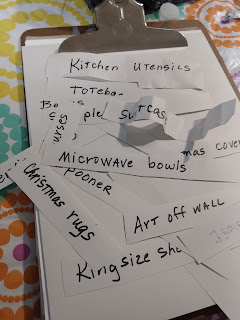 Kitchen utensils
Toteba
Bo
& ple
Sutcas
urses
mas cover
Microwave bowls
pooner
Christmas rugs
Art off wall
Kingsize sh